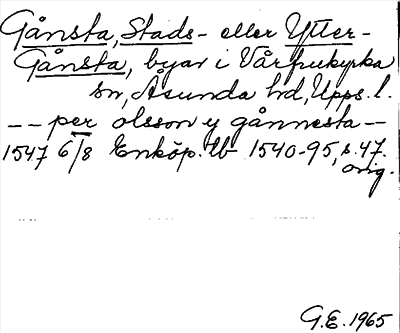 Gånsta, Stads- eller Ytter-
Gånsta, byar i Vårfrukyrka
sn, Åsunda hd, Upps. l.
-- per olsson y gånnesta --
1547 6/8 Enköp. tb 1540-95, s. 47.
orig.
G.E. 1965